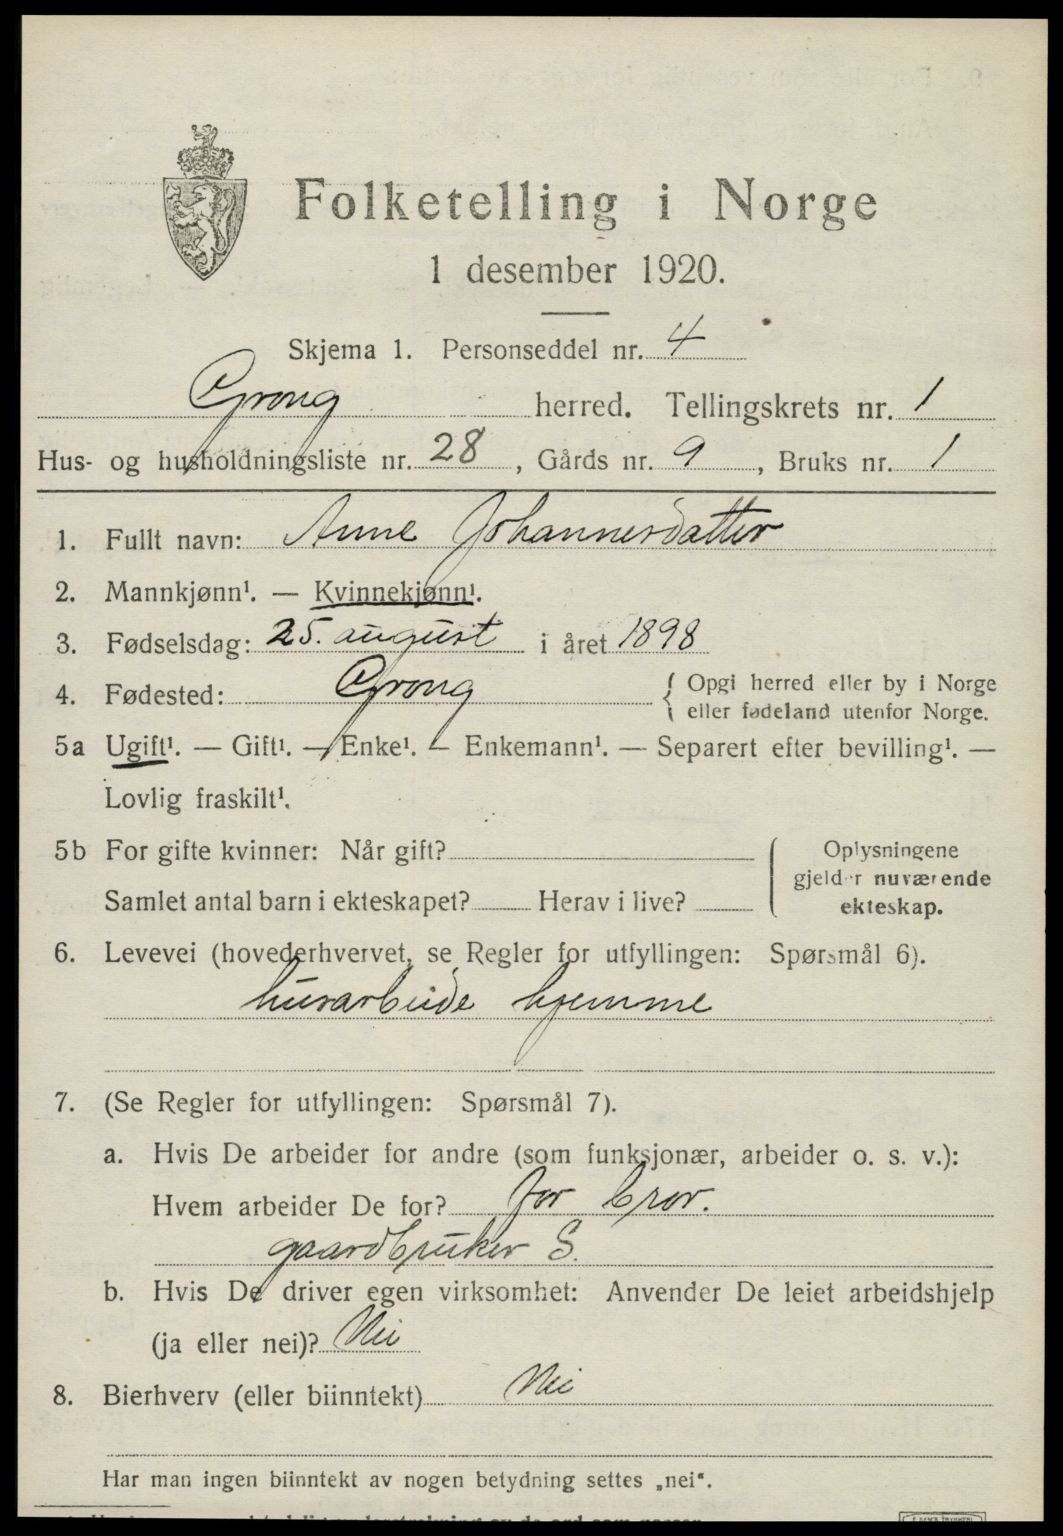 Folketelling i Norge
1 desember 1920.
Skjema 1. Personseddel nr. 4
Grong herred. Tellingskrets nr. 1
Hus- og husholdningsliste nr. 28, Gårds nr. 9, Bruks nr. 1
1. Fullt navn: Anne Johannesdatter
2. Mannkjønn¹. — Kvinnekjønn¹.
3. Fødselsdag: 25. august i året 1898
4. Fødested: Grong { Opgi herred eller by i Norge
eller fødeland utenfor Norge.
5a Ugift¹. — Gift¹. — Enke¹. — Enkemann¹. — Separert efter bevilling¹. —
Lovlig fraskilt¹.
5b For gifte kvinner: Når gift? Oplysningene
gjelder nuværende
Samlet antal barn i ekteskapet? Herav i live? ekteskap.
6. Levevei (hovederhvervet, se Regler for utfyllingen: Spørsmål 6).
husarbeide hjemme
7. (Se Regler for utfyllingen: Spørsmål 7).
a. Hvis De arbeider for andre (som funksjonær, arbeider o. s. v.):
Hvem arbeider De for? for bror.
gaardbruker S.
b. Hvis De driver egen virksomhet: Anvender De leiet arbeidshjelp
(ja eller nei)? Nei
8. Bierhverv (eller biinntekt) Nei
Har man ingen biinntekt av nogen betydning settes „nei“.